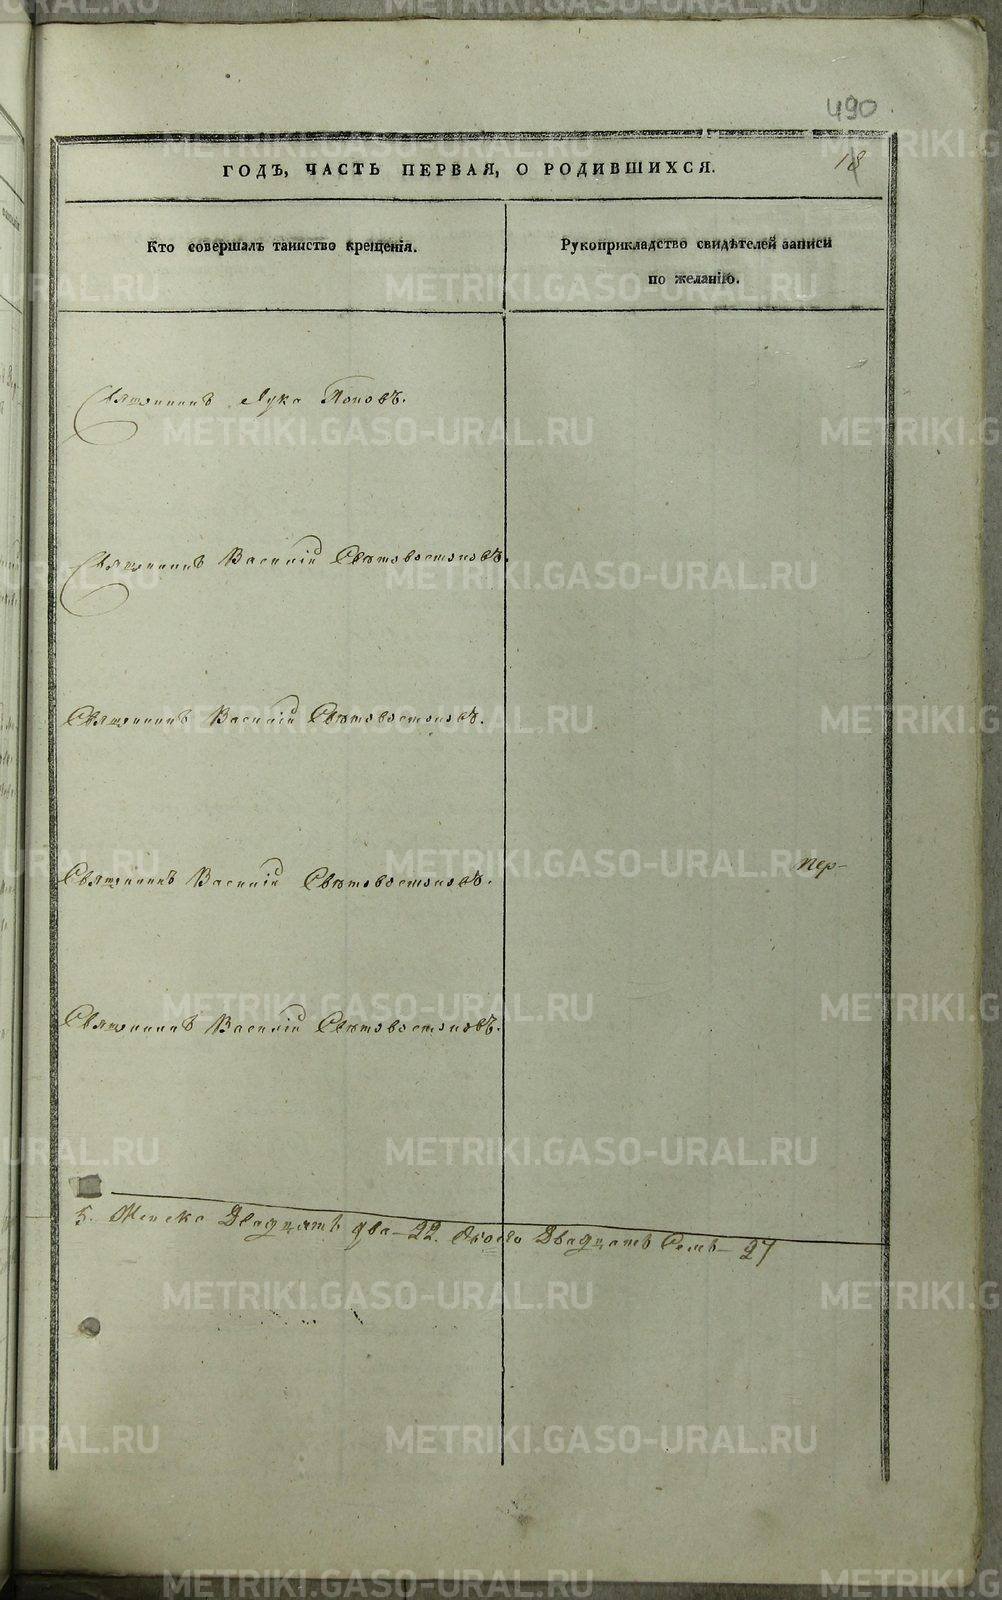 490
18
ГОДЪ, ЧАСТЬ ПЕРВАЯ, О РОДИВШИХСЯ.
Кто совершалъ таинство крещенія.
Рукоприкладство свидѣтелей записи
по желанію.
Священникъ Лука Поповъ.
Священникъ Василій Свѣтовостоковъ.
Священникъ Василій Свѣтовостоковъ.
Священникъ Василій Свѣтовостоковъ.
Священникъ Василій Свѣтовостоковъ.
5. Женска Двадцать два – 22. Обоего Двадцать Семь – 27
METRIKI.GASO-URAL.RU